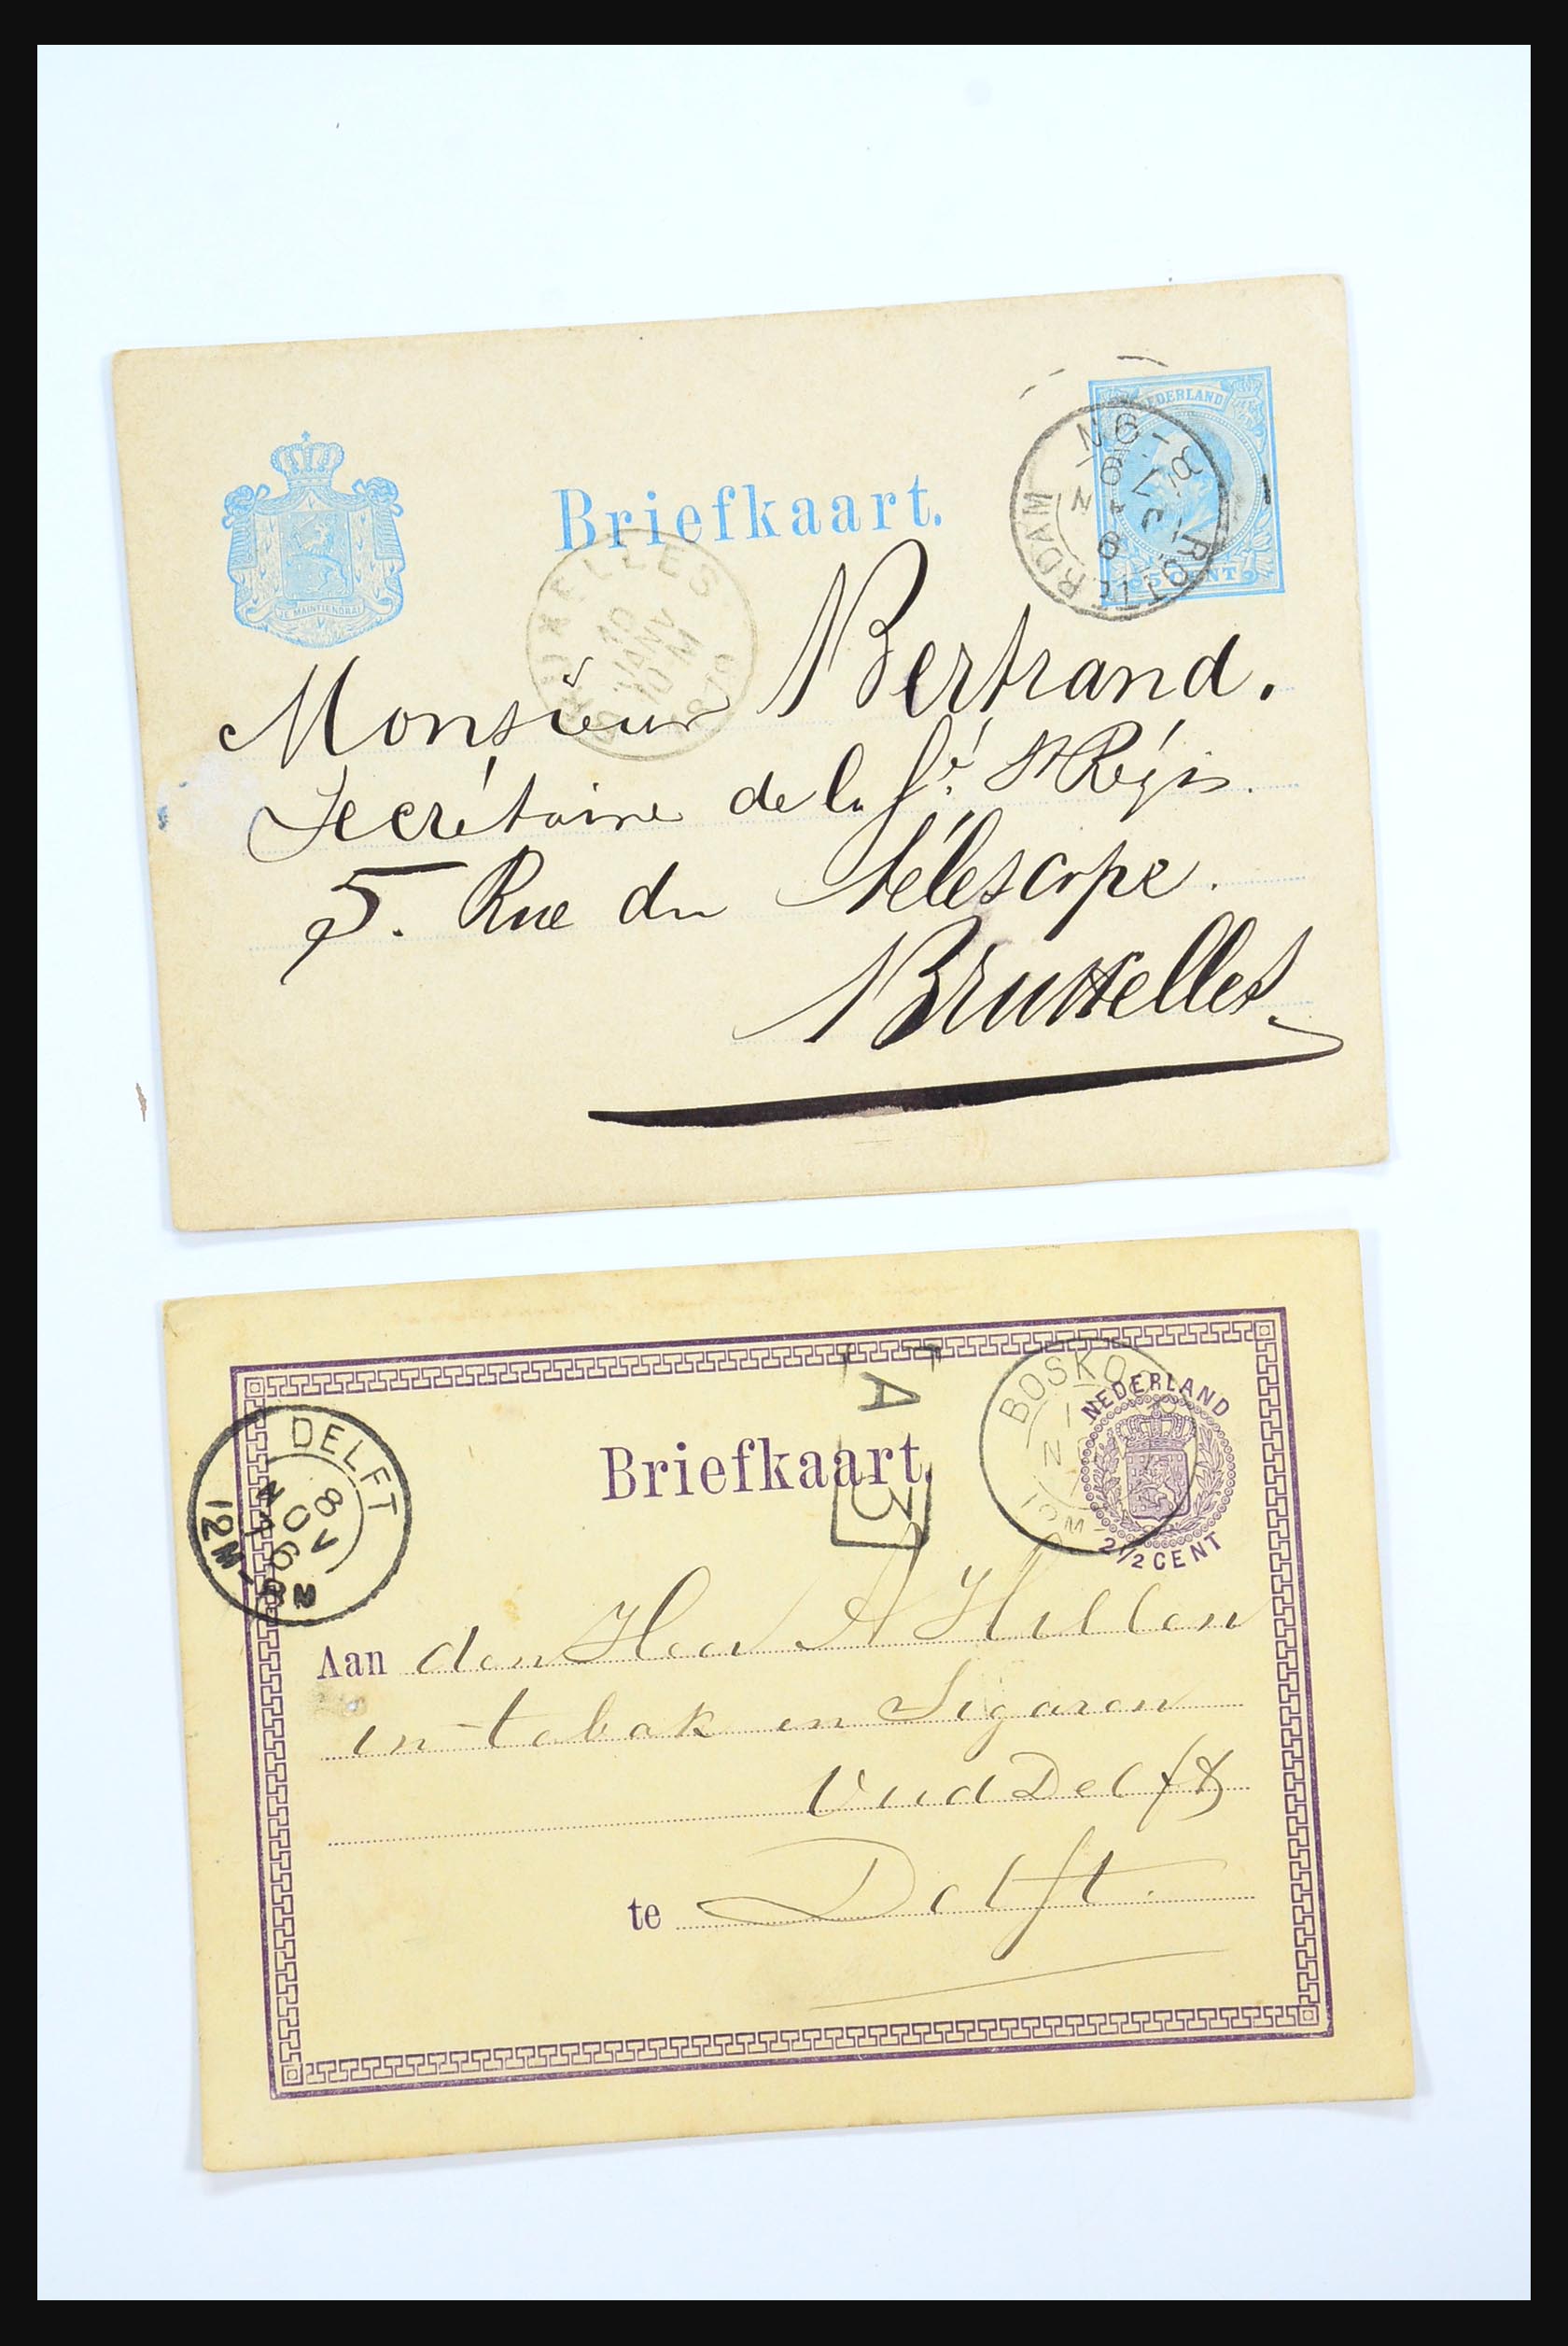 NEDERLAND
5 CENT
ROTTERDAM
JE MAINTIENDRAI
Briefkaart.
BRUXELLES
10 JANV
10 M
1879
Monsieur Bertrand.
Secrétaire de la St Régis.
5. Rue du Télescope.
Bruxelles.
BOSKO
NEDERLAND
2 1/2 CENT
A
3
Briefkaart.
DELFT
8 NOV 76
12M-8N
Aan den Heer A Hillen
in tabak en Sigaren
Oud Delft
te Delft.